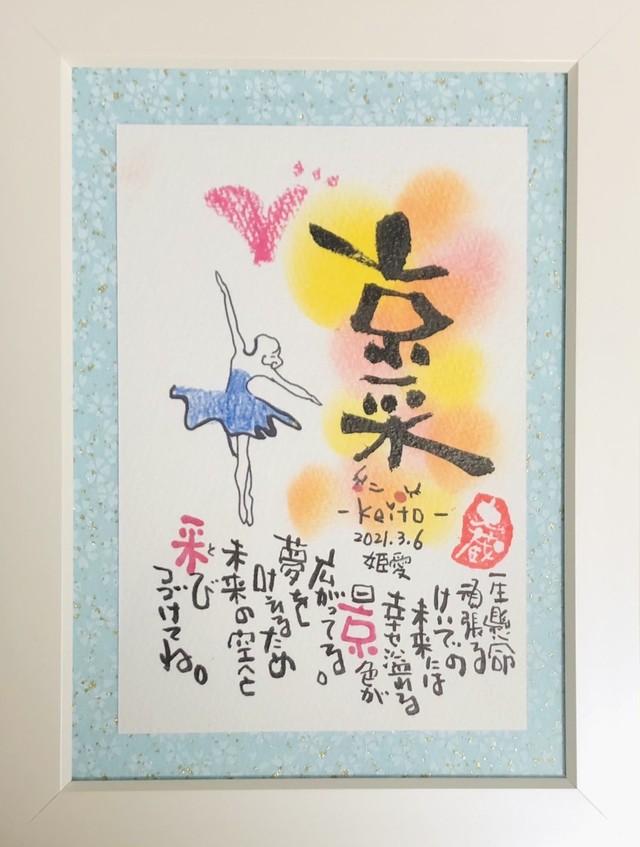 京采
-Keito-
2021.3.6
姫愛
一生懸命
頑張る
けいとの
未来には
幸せ溢れる
景色が
広がってる。
夢を
叶えるため
未来の空へと
采び
と
つづけてね。